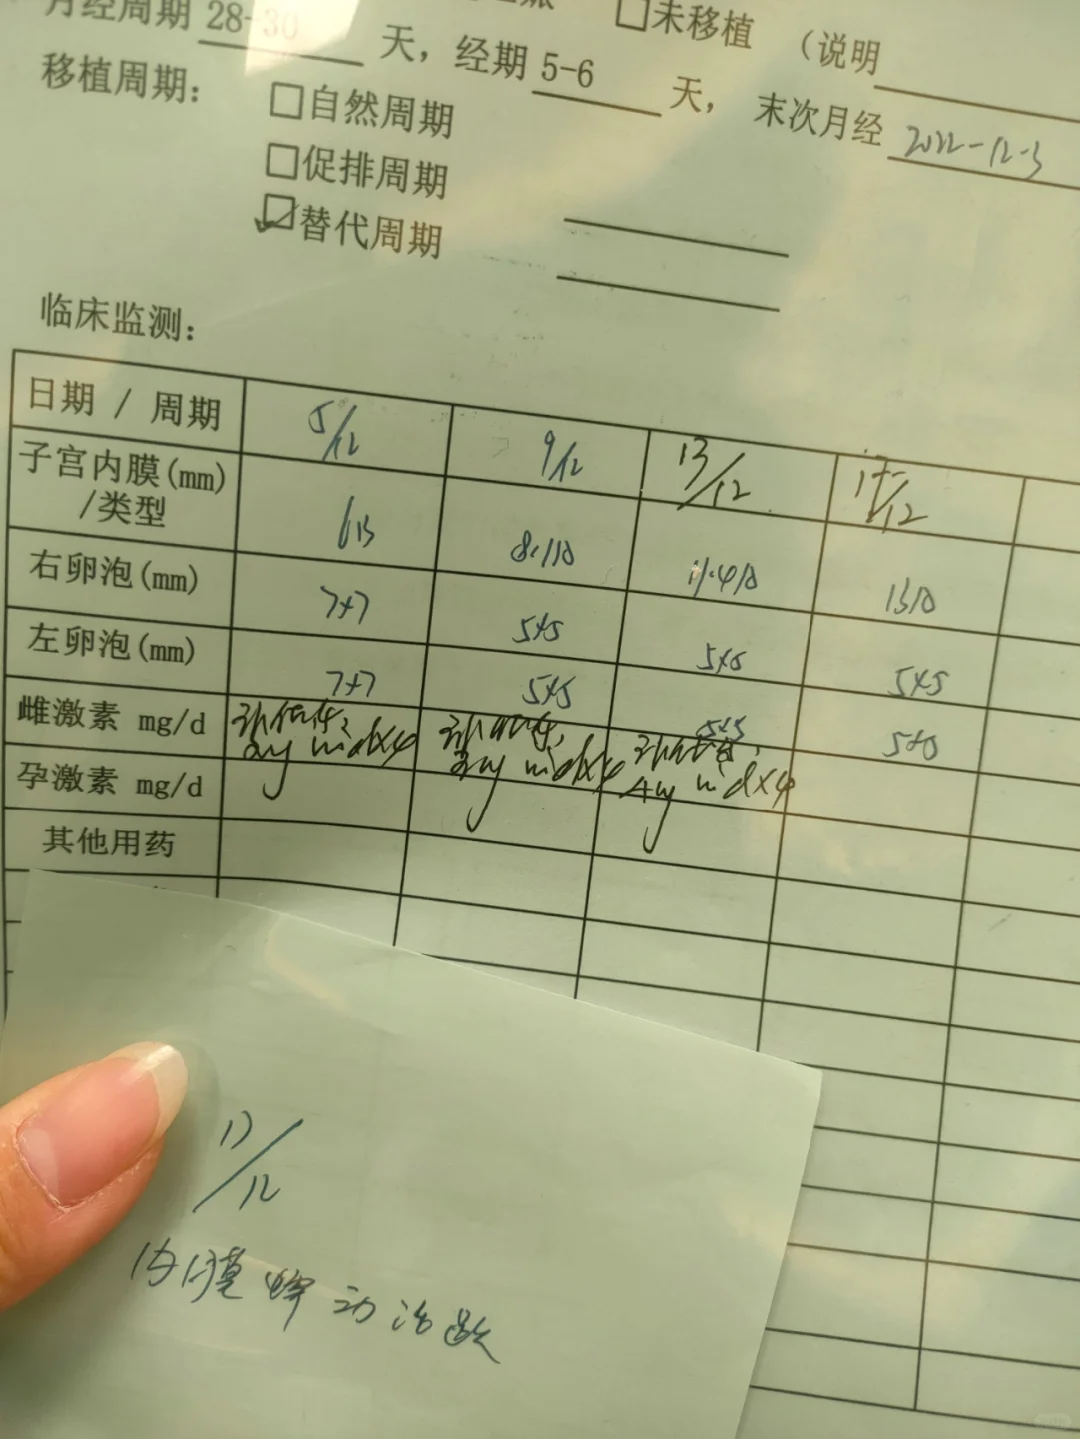 月经周期 28-30 天，经期 5-6 天，末次月经 2022-12-3
□未移植 （说明
移植周期： □自然周期
□促排周期
☑替代周期
临床监测：
日期 / 周期 5/12 9/12 13/12 17/12
子宫内膜(mm)/类型 6B 8.1B 11.4B 13B
右卵泡(mm) 7×7 5×5 5×5 5×5
左卵泡(mm) 7×7 5×5 5×5 5×5
雌激素 mg/d
孕激素 mg/d
其他用药
17/12
内膜蠕动活跃